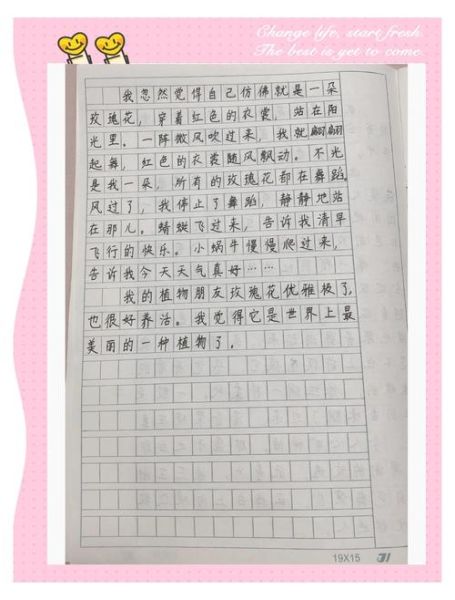 Change life, start fresh.
The best is yet to come.
我忽然觉得自己仿佛就是一朵
玫瑰花，穿着红色的衣裳，站在阳
光里。一阵微风吹过来，我就翩翩
起舞，红色的衣裳随风飘动。不光
是我一朵，所有的玫瑰花都在舞蹈。
风过了，我停止了舞蹈，静静地站
在那儿。蜻蜓飞过来，告诉我清早
飞行的快乐。小蜗牛慢慢爬过来，
告诉我今天天气真好……
我的植物朋友玫瑰花优雅极了，
也很好养活。我觉得它是世界上最
美丽的一种植物了。
19X15